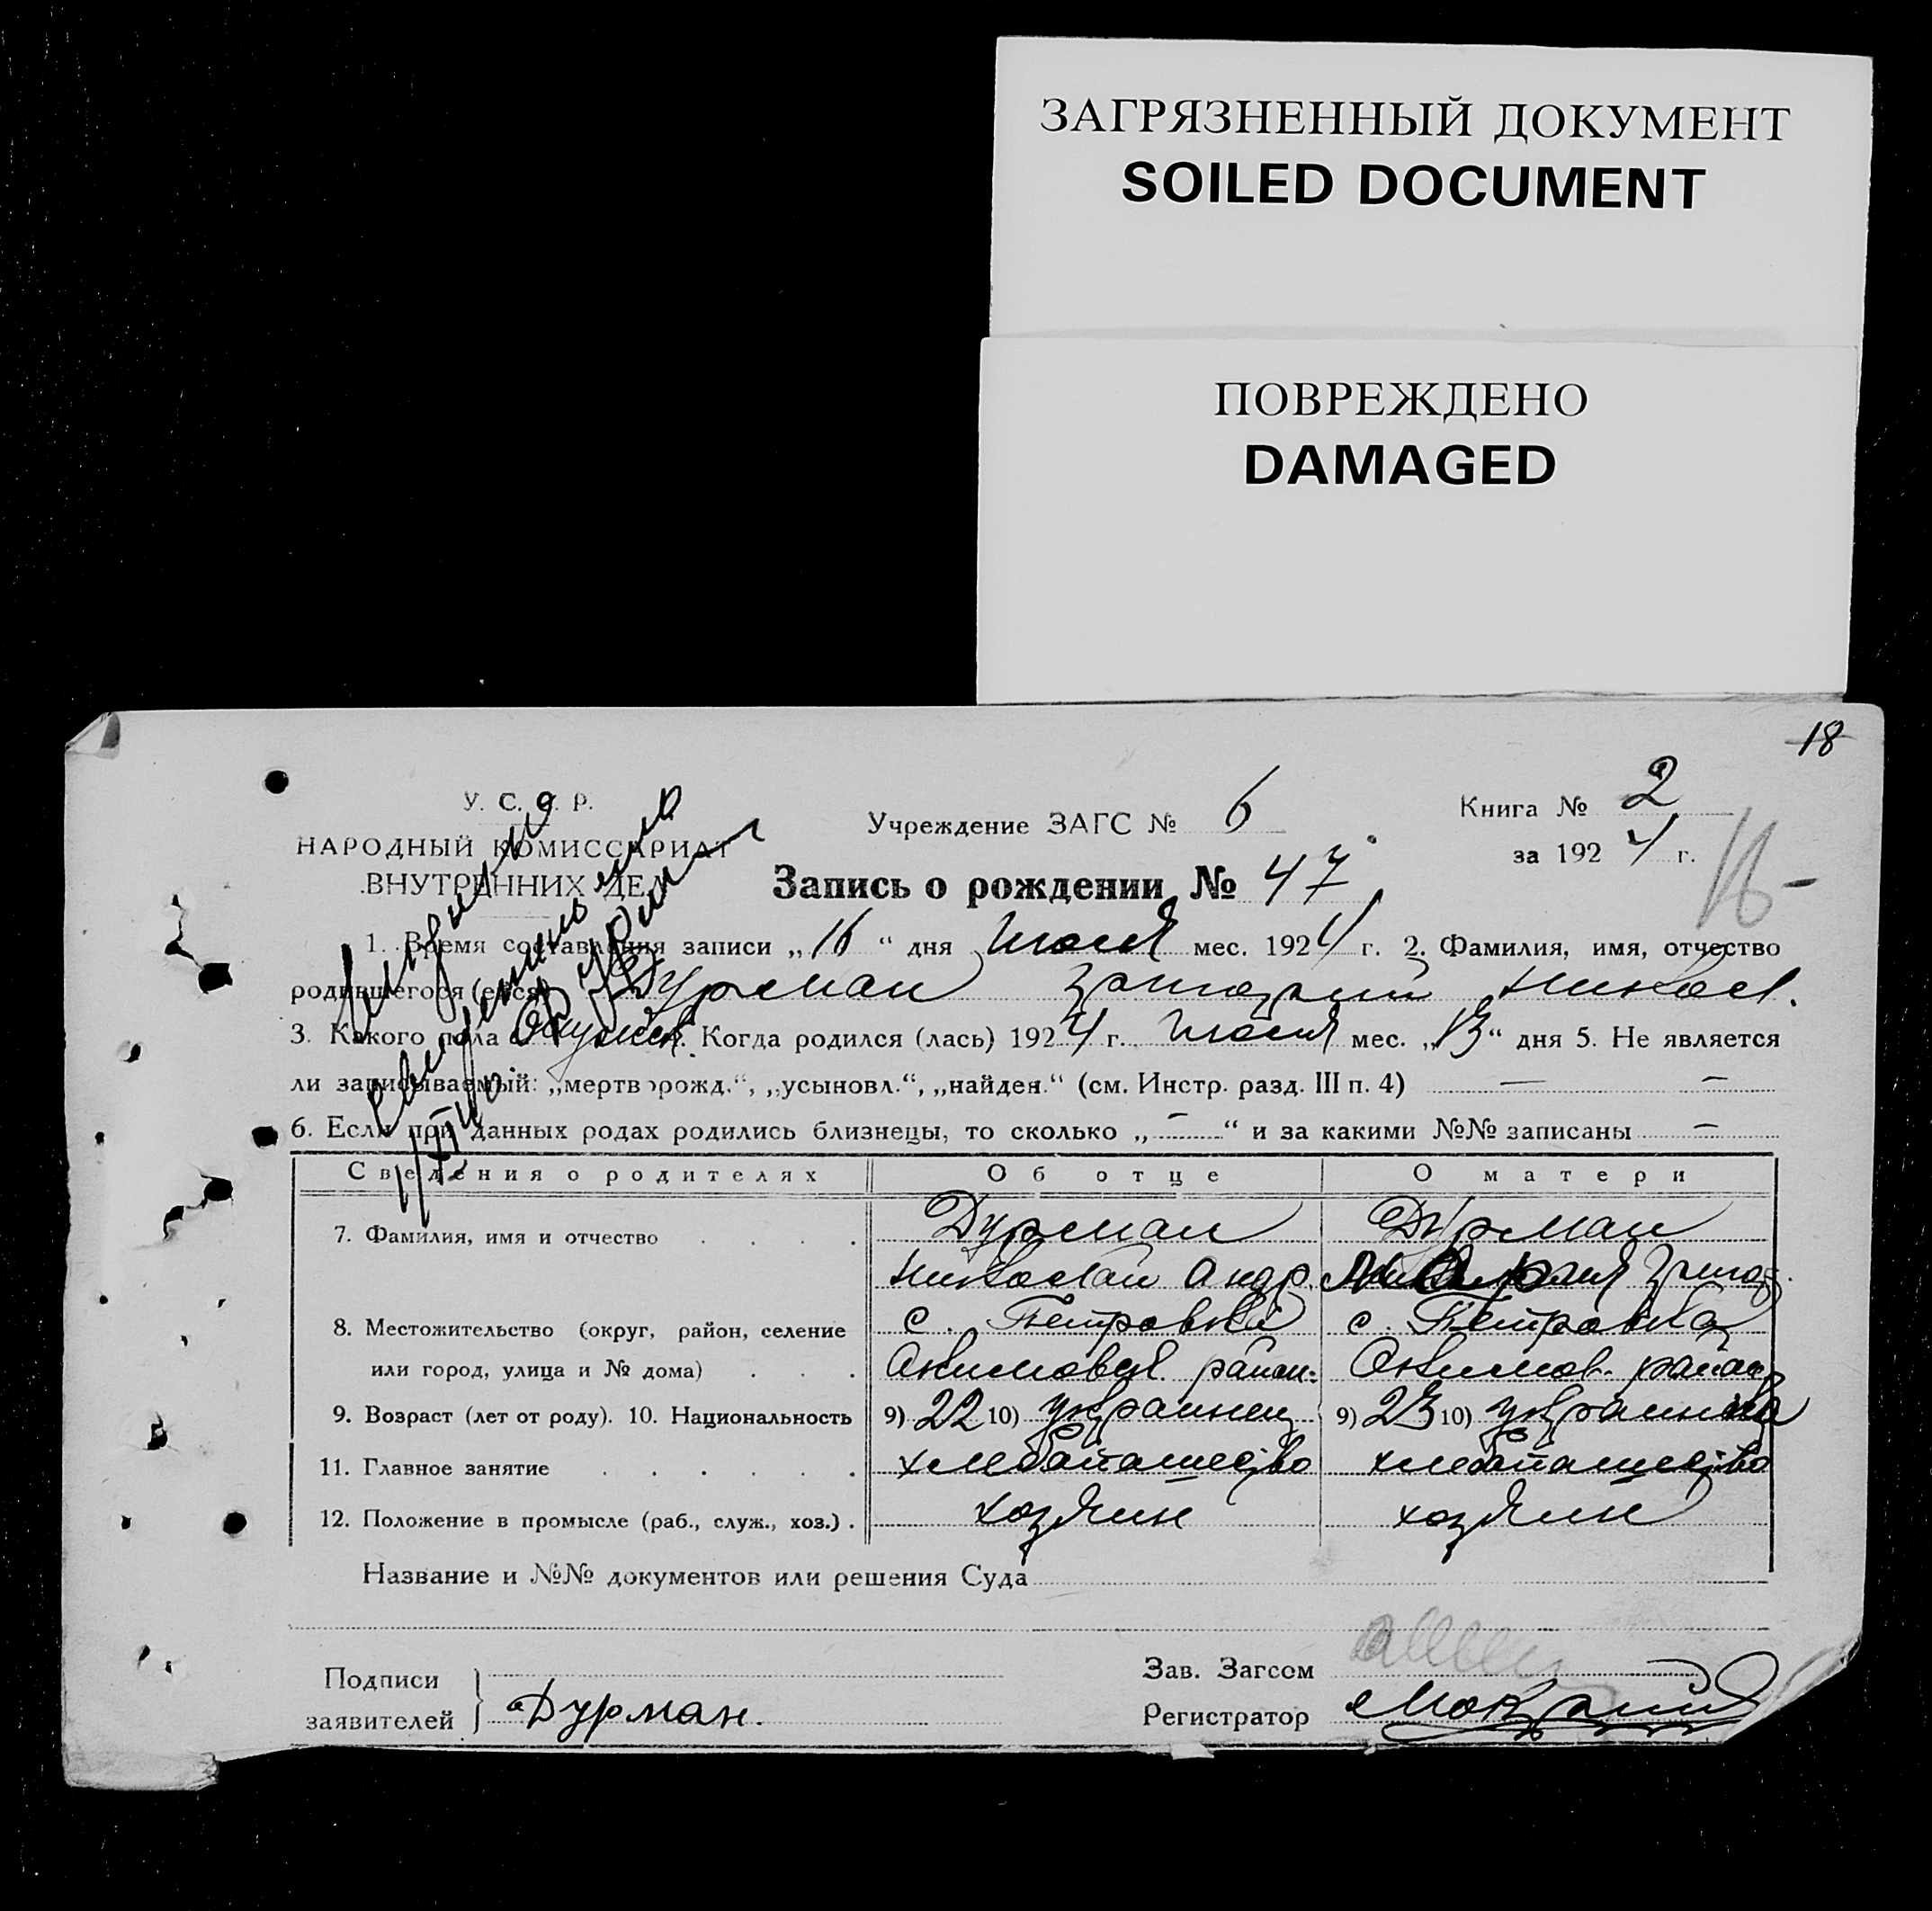 ЗАГРЯЗНЕННЫЙ ДОКУМЕНТ
SOILED DOCUMENT
ПОВРЕЖДЕНО
DAMAGED
18
У. С. С. Р.
НАРОДНЫЙ КОМИССАРИАТ
ВНУТРЕННИХ ДЕЛ
Учреждение ЗАГС № 6
Книга № 2
за 1924 г.
16-
Запись о рождении № 47
1. Время составления записи „16“ дня Июля мес. 1924 г. 2. Фамилия, имя, отчество
родившегося (ейся) Дурман Григорий Никол.
3. Какого пола Мужск. Когда родился (лась) 1924 г. Июля мес. „13“ дня 5. Не является
ли записываемый: „мертворожд.“, „усыновл.“, „найден.“ (см. Инстр. разд. III п. 4) — —
6. Если при данных родах родились близнецы, то сколько „—“ и за какими №№ записаны —
Сведения о родителях Об отце О матери
7. Фамилия, имя и отчество . . . . Дурман Дурман
Николай Андр. Мария Григор.
8. Местожительство (округ, район, селение с. Петровка с. Петровка
или город, улица и № дома) . . . Акимовск. район. Акимов. район
9. Возраст (лет от роду). 10. Национальность 9) 22 10) украинец 9) 23 10) украинка
11. Главное занятие . . . . . . хлебопашество хлебопашество
12. Положение в промысле (раб., служ., хоз.) . хозяин хозяин
Название и №№ документов или решения Суда
Подписи
заявителей } Дурман.
Зав. Загсом
Регистратор